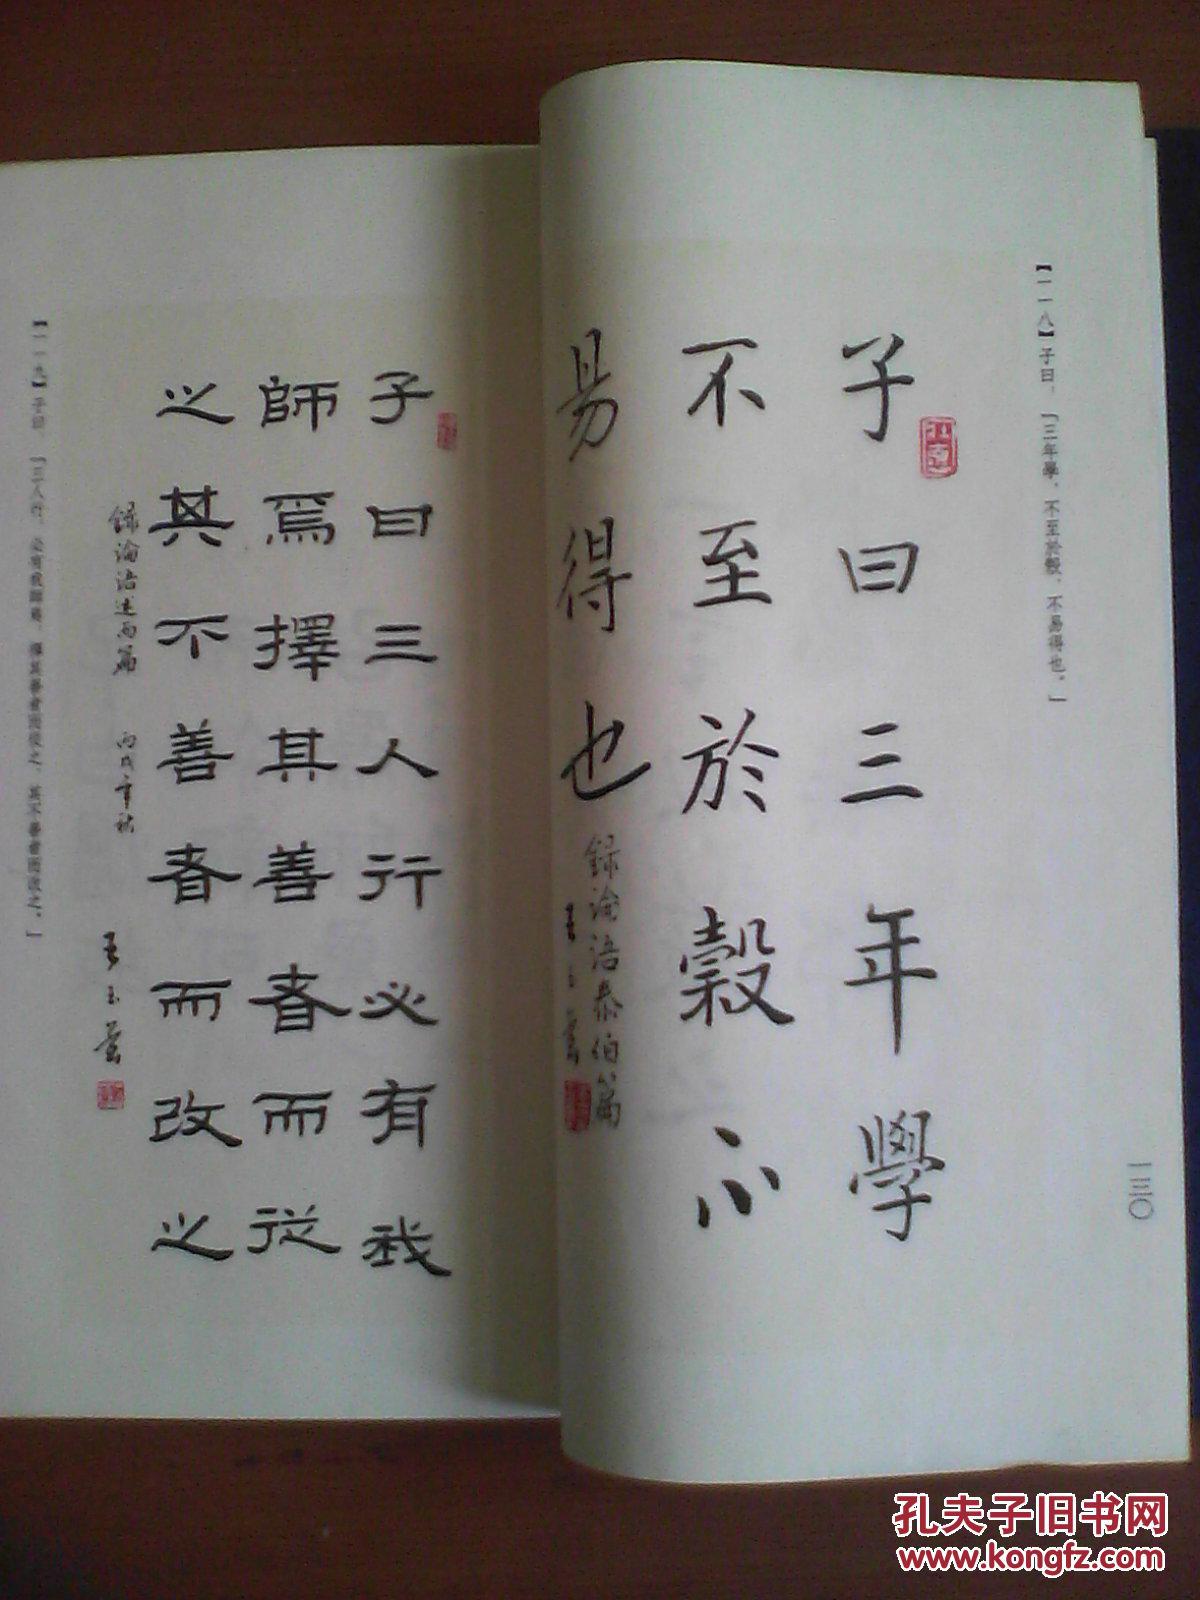 【一一八】子曰：「三年學，不至於穀，不易得也。」
子曰三年學
不至於穀不
易得也
錄論語泰伯篇
王玉書
一三〇
子曰三人行必有我
師焉擇其善者而從
之其不善者而改之
錄論語述而篇　丙戌年秋
【一一九】子曰：「三人行，必有我師焉，擇其善者而從之，其不善者而改之。」
孔夫子旧书网
www.kongfz.com